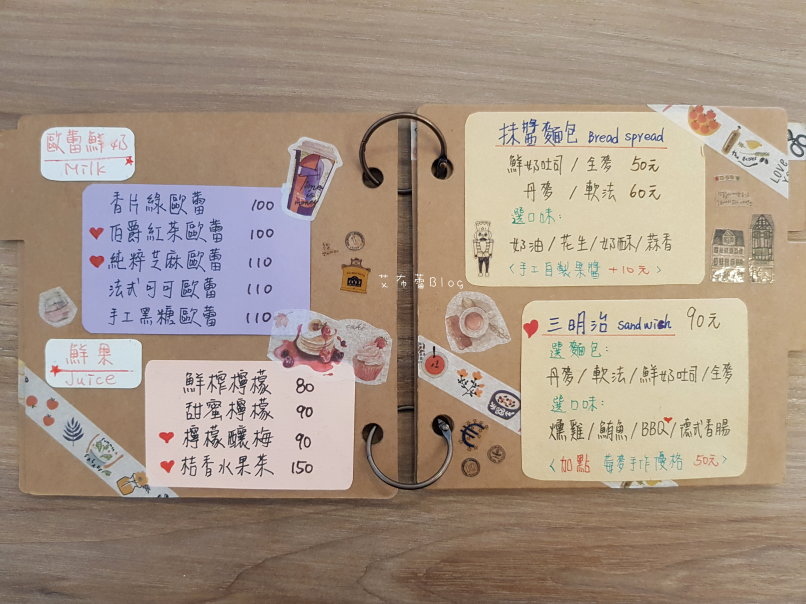 歐蕾鮮奶
Milk
香片綠歐蕾 100
伯爵紅茶歐蕾 100
純粹芝麻歐蕾 110
法式可可歐蕾 110
手工黑糖歐蕾 110
鮮果
Juice
鮮榨檸檬 80
甜蜜檸檬 90
檸檬釀梅 90
桔香水果茶 150
抹醬麵包 Bread spread
鮮奶吐司/全麥 50元
丹麥/軟法 60元
選口味:
奶油/花生/奶酥/蒜香
〈手工自製果醬 +10元〉
三明治 sandwich 90元
選麵包:
丹麥/軟法/鮮奶吐司/全麥
選口味:
燻雞/鮪魚/BBQ/德式香腸
〈加點 莓麥手作優格 50元〉
艾布蕾Blog
LOVE